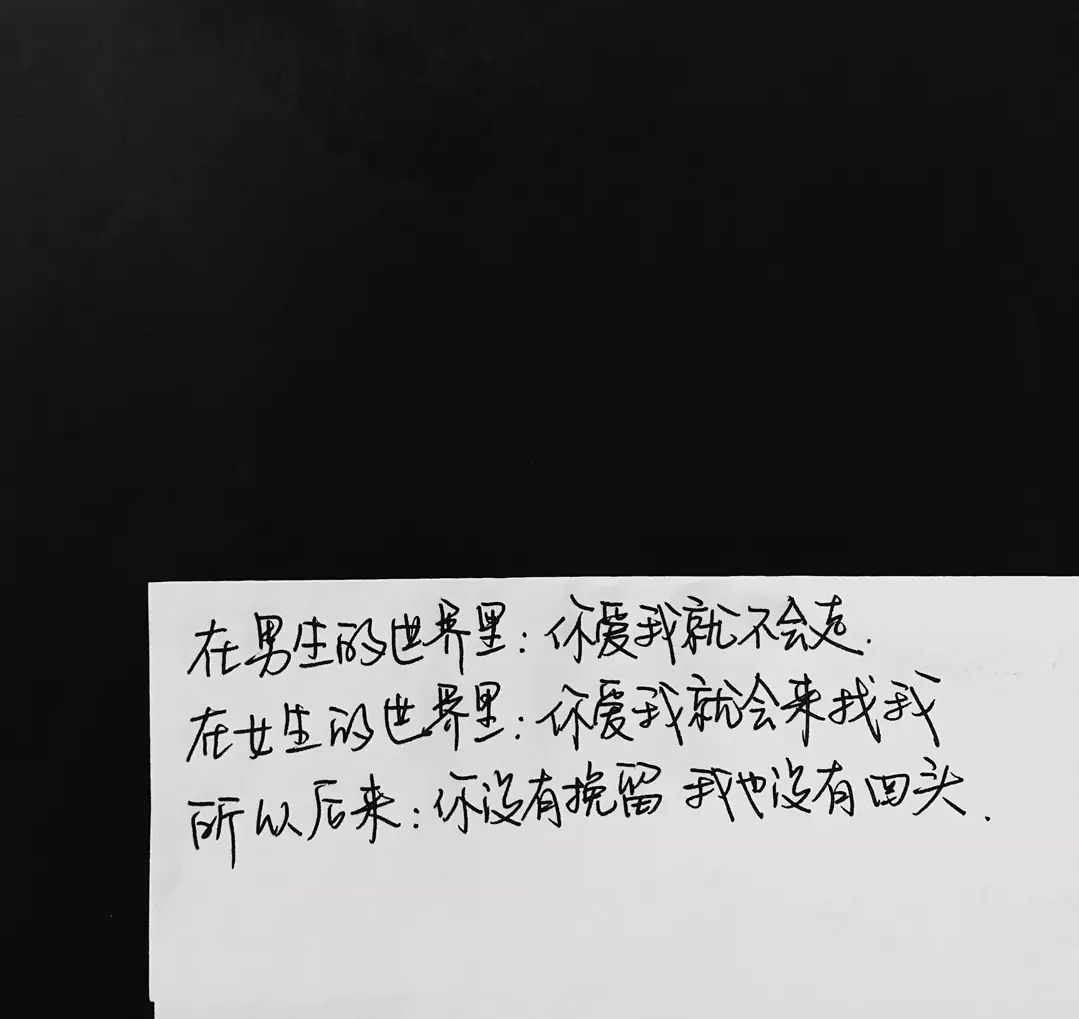 在男生的世界里:你爱我就不会走.
在女生的世界里:你爱我就会来找我
所以后来:你没有挽留 我也没有回头.